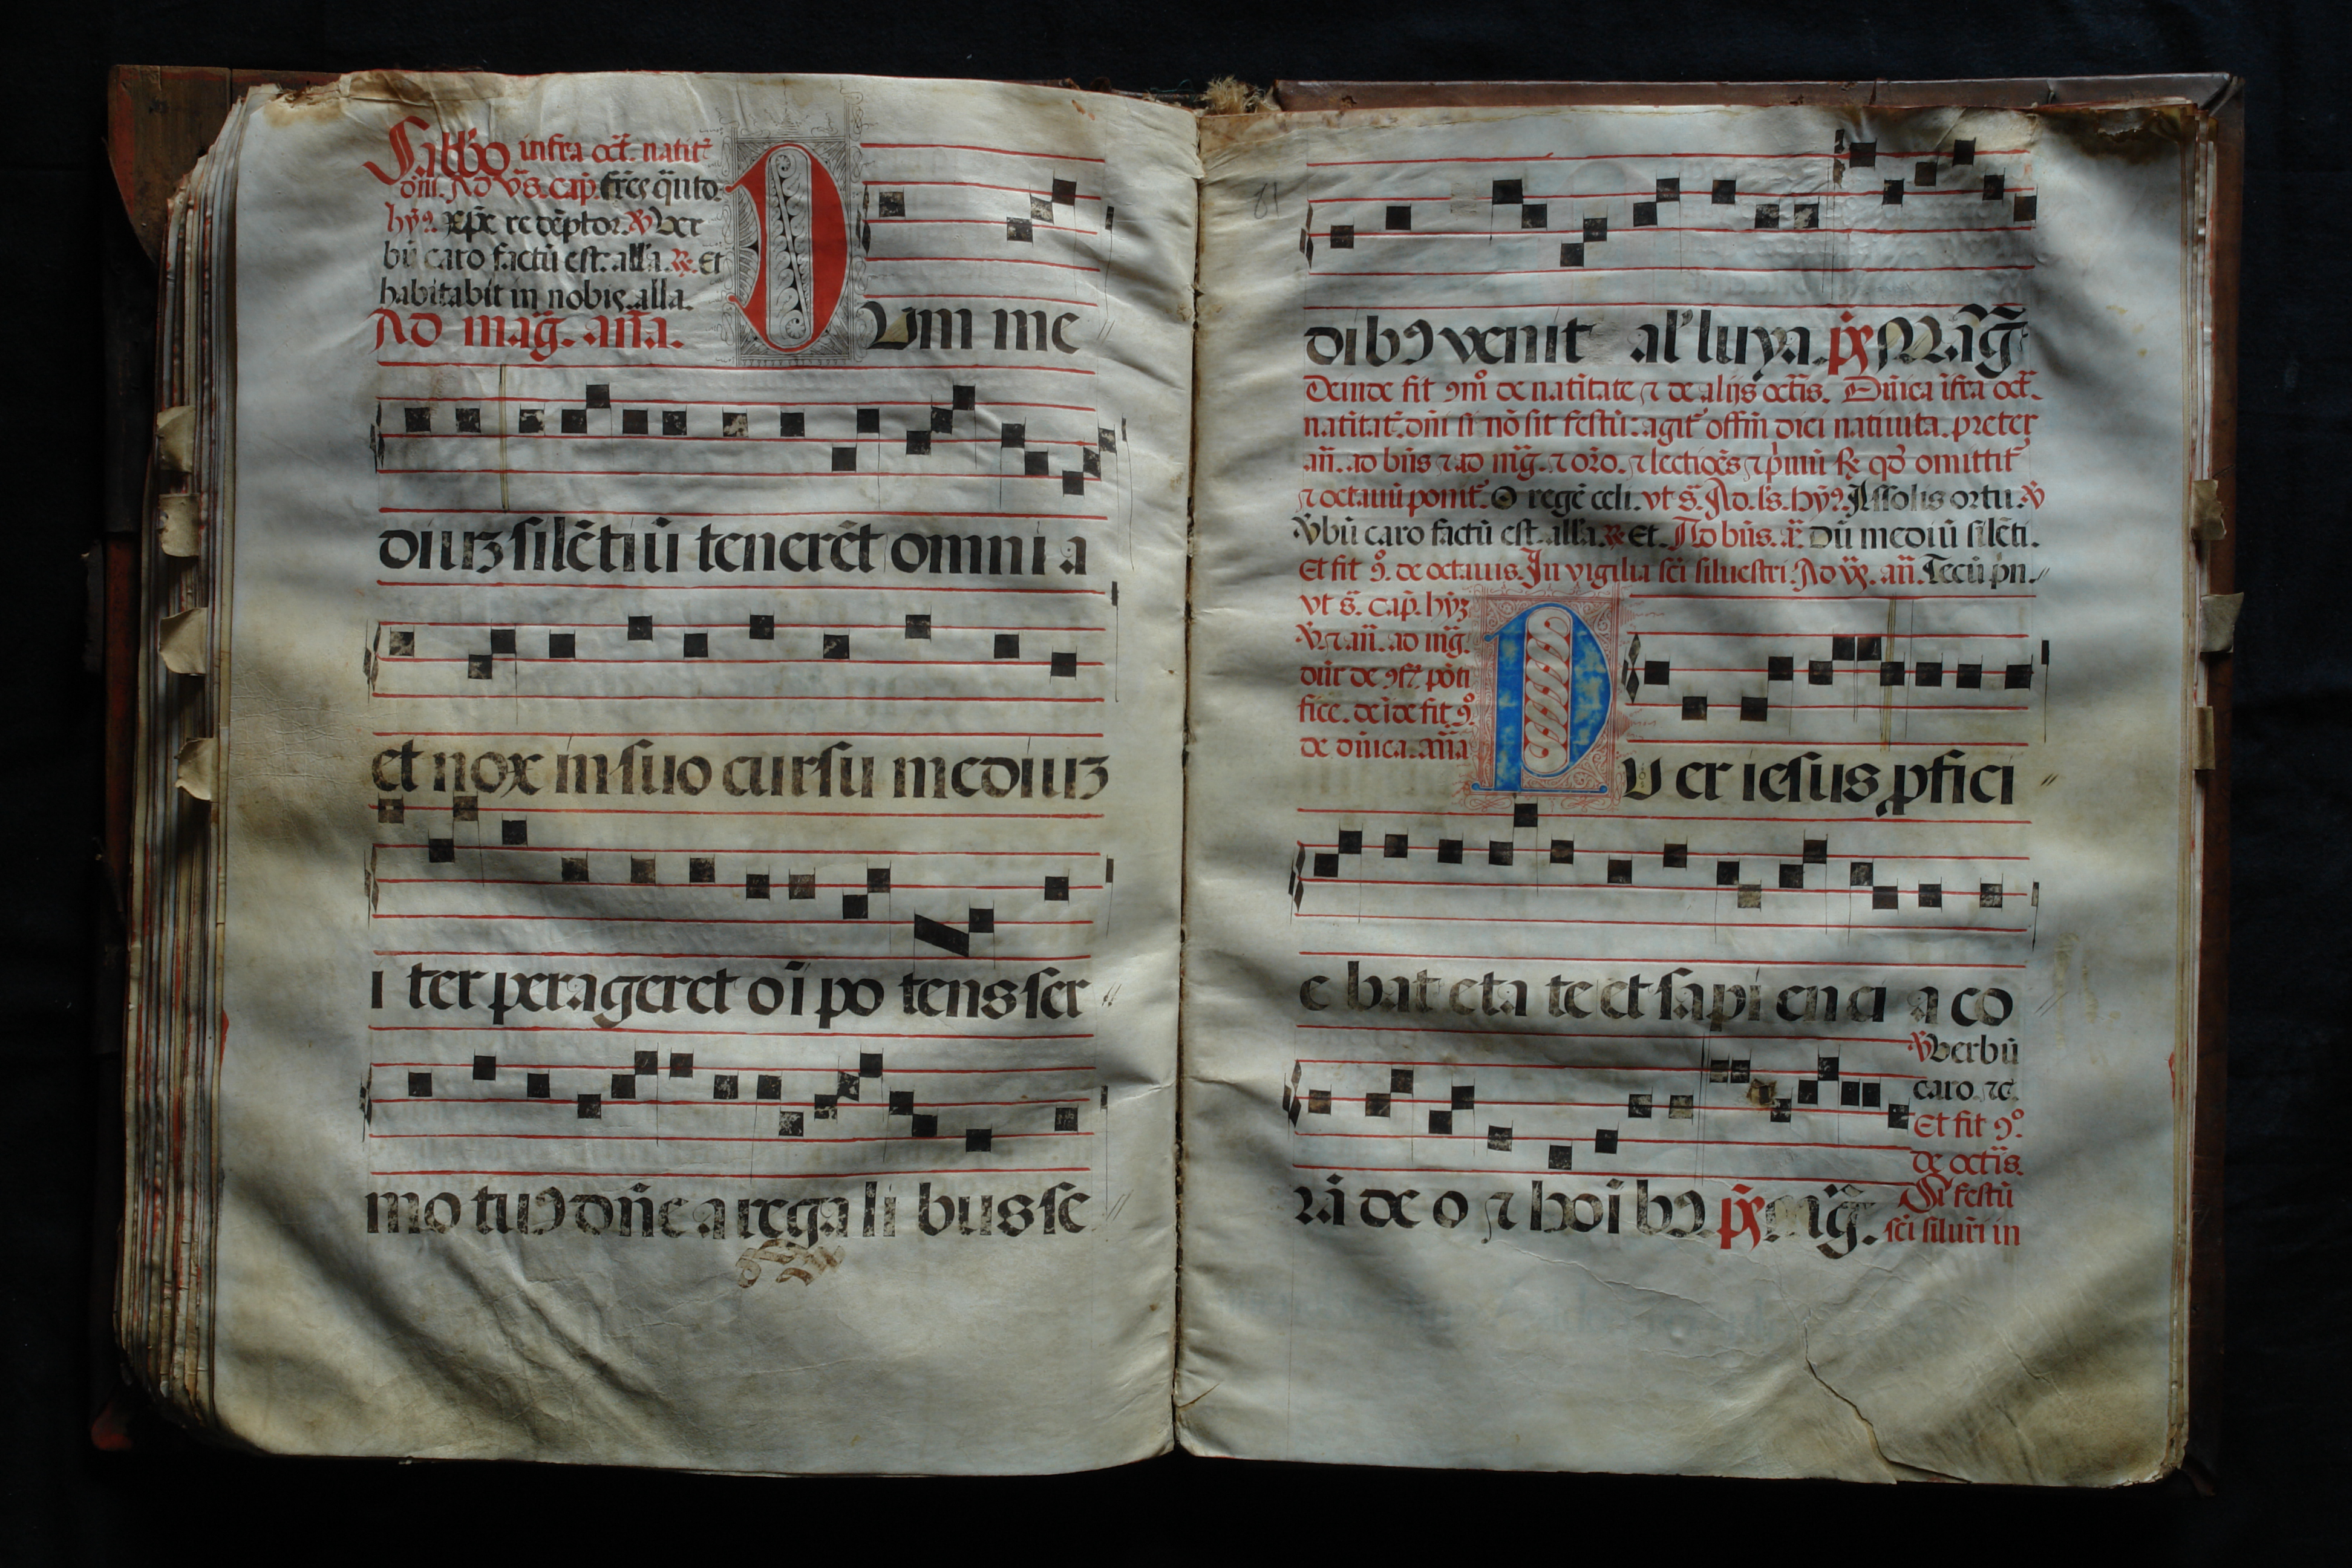 Sabbo infra oct̃. natit᷈
dñi. Ad v̄s. cap̃. fr̃es q̃nto.
hȳ9. xp̃e redẽptor. ℣ Ver
bũ caro factũ est. alla. ℟. Et
habitabit in nobis. alla.
Ad mag̃. aña.
DUm me
diuʒ silẽtiũ tenerẽt omni a
et nox in suo cursu mediuʒ
i ter perageret oĩ po tens ser
mo tuꝰ dñe a rega li bus se
81
dibꝰ venit al'luya. p̃s Mag̃
Deinde fit ꝯm̃o de natĩtate ⁊ de alijs octĩs. Dñica ĩfra oct̃.
natĩtat̃. dñi si nõ sit festũ: agit᷈ offm̃ diei natiuita. preter
añ. ad bñs ⁊ ad mg̃. ⁊ orõ. ⁊ lectiões ⁊ p̃imũ ℟ qd̃ omittit᷈
⁊ octauũ ponit᷈. O regẽ celi. vt s̃. Ad. ls̃. hȳ9. A ssolis ortu. ℣
Vbũ caro factũ est. alla. ℟ Et. Ad bñs. ã Dũ mediũ silẽti.
Et fit ꝯ̊. de octauis. In vigilia sc̃i siluestri. Ad v̄s. añ. Tecũ pn.
vt s̃. cap̃. hȳʒ
℣. ⁊ añ. ad mg̃.
dñr de ꝯf. põti
fice. deĩde fit ꝯ̊.
de dñica. aña
PU er iesus ꝓfici
e bat eta te et sapi enci a co
rã de o ⁊ hoĩ bꝰ p̃s mg̃.
℣ Verbũ
caro. ⁊c.
Et fit ꝯ̊.
de octĩs.
Si festũ
sc̃i silur̃i in